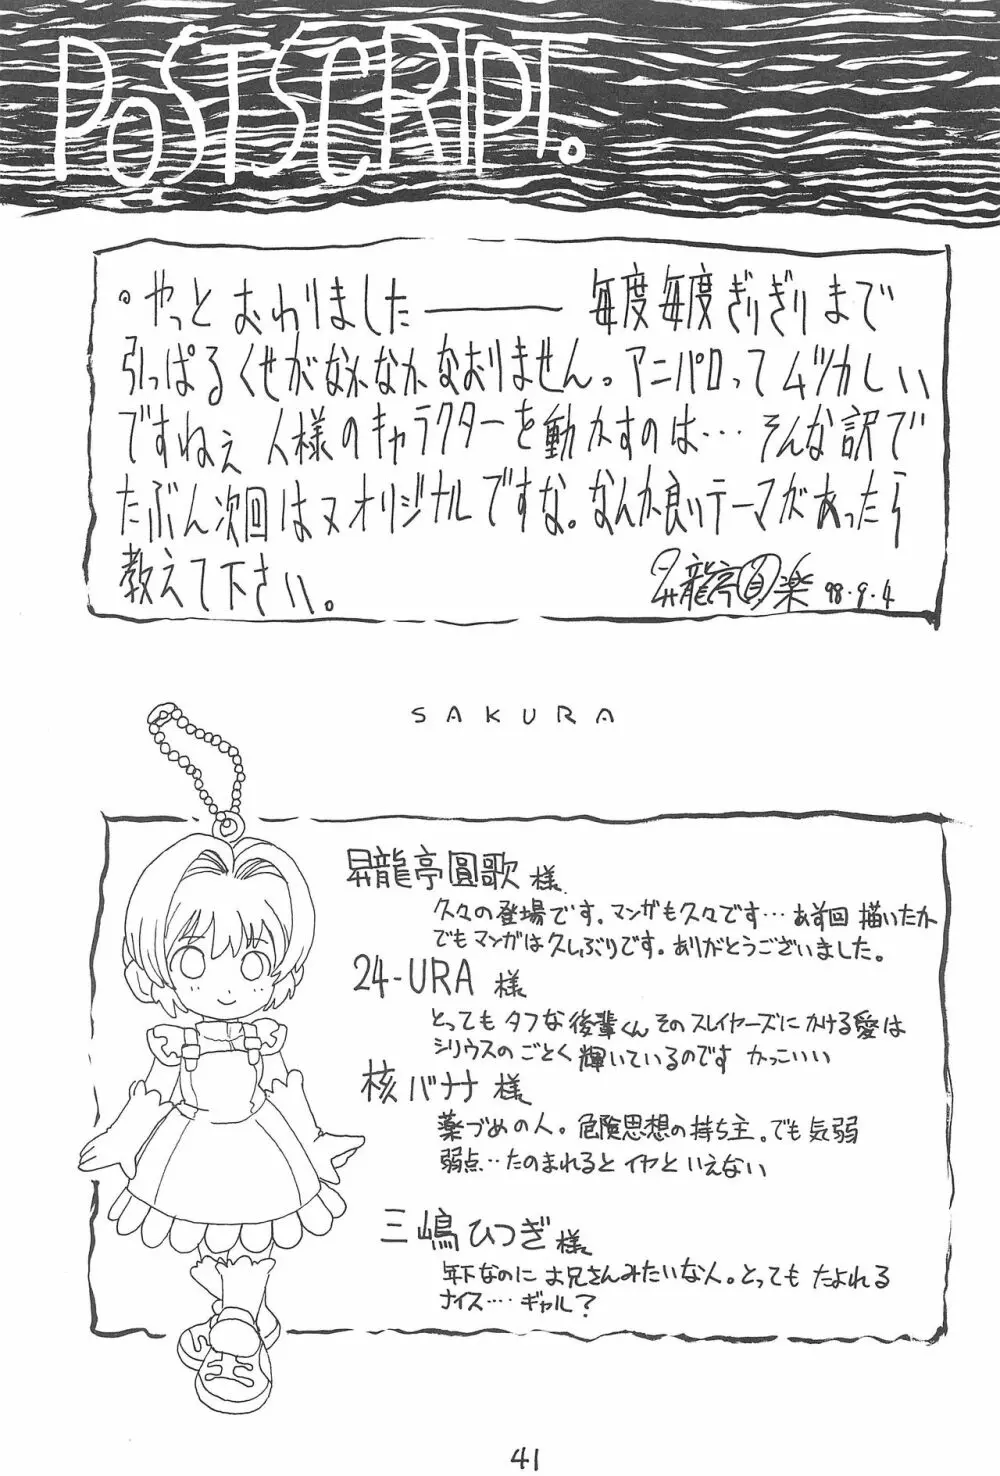 POSTSCRIPT.
・やっとおわりました―― 毎度毎度ぎりぎりまで
引っぱるくせがなかなかなおりません。アニパロってムツカしい
ですねぇ 人様のキャラクターを動かすのは… そんな訳で
たぶん次回はオリジナルですな。なんか良いテーマがあったら
教えて下さい。
昇龍亭圓楽 98.9.4
SAKURA
昇龍亭圓歌 様
久々の登場です。マンガも久々です…あす回 描いたか
でもマンガは久しぶりです。ありがとうございました。
24-URA 様
とっても タフな後輩くん そのスレイヤーズにかける愛は
シリウスのごとく輝いているのです かっこいい
核バナナ 様
薬づめの人。危険思想の持ち主。でも気弱
弱点…たのまれると イヤといえない
三嶋ひつぎ様
年下なのに お兄さんみたいな人。とっても たよれる
ナイス…ギャル?
41